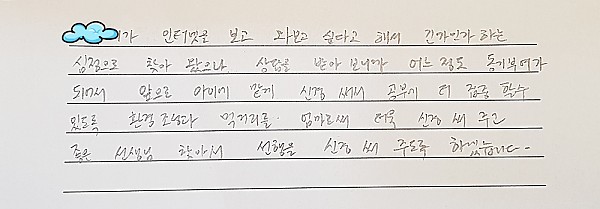 가 인터넷을 보고 와보고 싶다고 해서 긴가민가 하는
심정으로 찾아 왔으나 상담을 받아 보니까 어느 정도 동기부여가
되어서 앞으로 아이에 맞게 신경 써서 공부에 더 집중 할수
있도록 환경 조성과 먹거리를 엄마로써 더욱 신경 써 주고
좋은 선생님 찾아서 선행을 신경 써 주도록 하겠습니다.